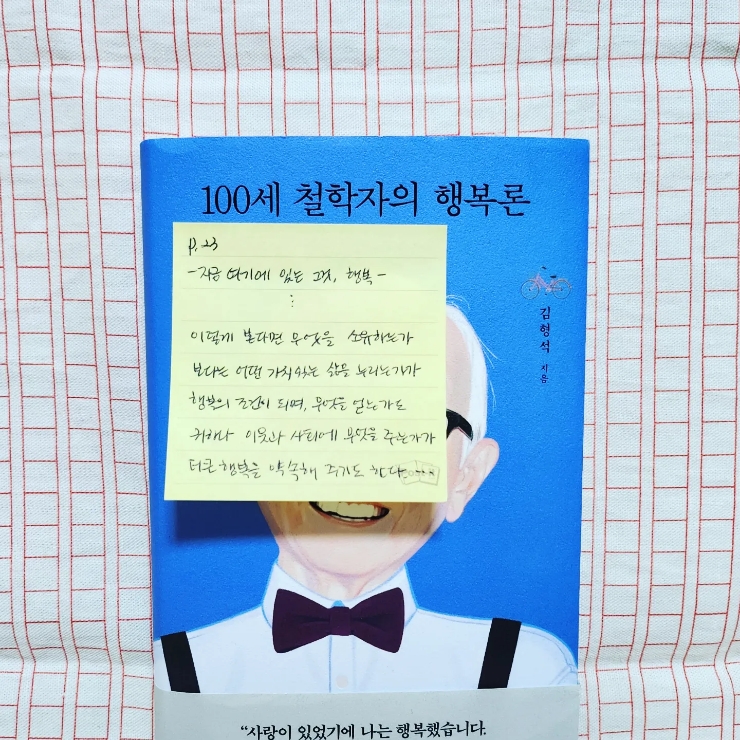 100세 철학자의 행복론
김형석 지음
p.23
-지금 여기에 있는 것, 행복-
⋮
이렇게 본다면 무엇을 소유하는가
보다는 어떤 가치있는 삶을 누리는가가
행복의 조건이 되며, 무엇을 얻는가도
귀하나 이웃과 사회에 무엇을 주는가가
더큰 행복을 약속해 주기도 한다....
"사랑이 있었기에 나는 행복했습니다.